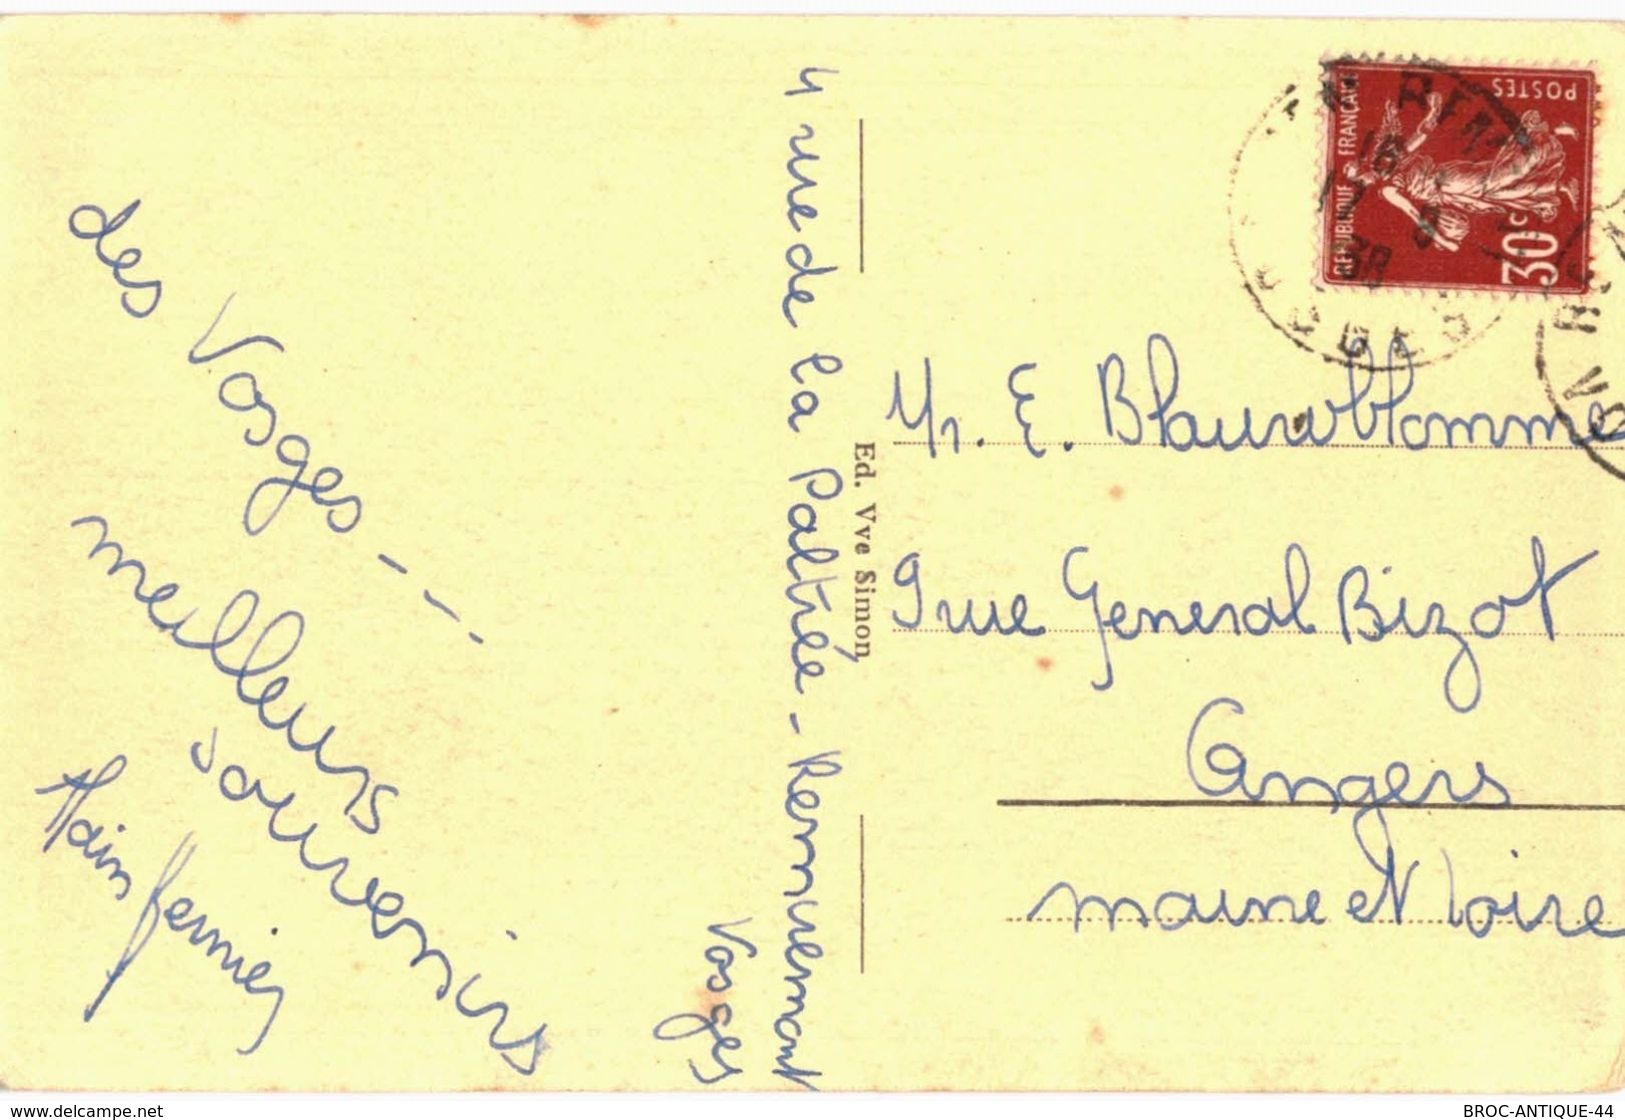 des Vosges - - -
meilleurs
souvenirs
4 rue de la Paltrée - Remiremont
Vosges
Ed. Vve Simon
Mr. E. Blauwblomme
9 rue General Bizot
Angers
maine et Loire
REPUBLIQUE FRANÇAISE
POSTES
30c
18
38
BROC-ANTIQUE-44
https://www.delcampe.net